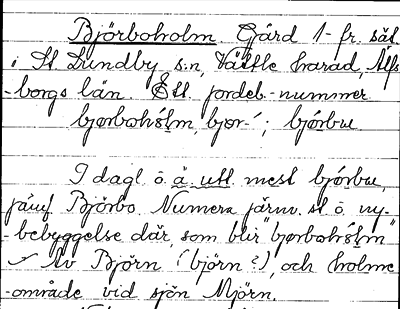 Björboholm Gård 1 fr. sät.
i St. Lundby s:n, Vättle härad, Älfs
-borgs län. Ett jordeb.-nummer
bjœrbohólm, bjœr-´; bjórbu
I dagl. o. ä. utt. mest bjórbu,
jämf Björbo. Numera järnv. st o. ny-
-bebyggelse där, som blir "bjœrbohólm"
Av Björn (björn?), och holme
-område vid sjön Mjörn.